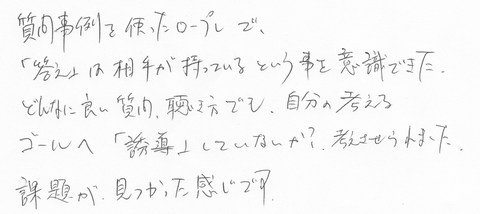 質問事例を使ったロープレで、
「答え」は相手が持っているという事を意識できた。
どんなに良い質問、聴き方でも、自分の考える
ゴールへ「誘導」していないか？考えさせられました。
課題が、見つかった感じです。